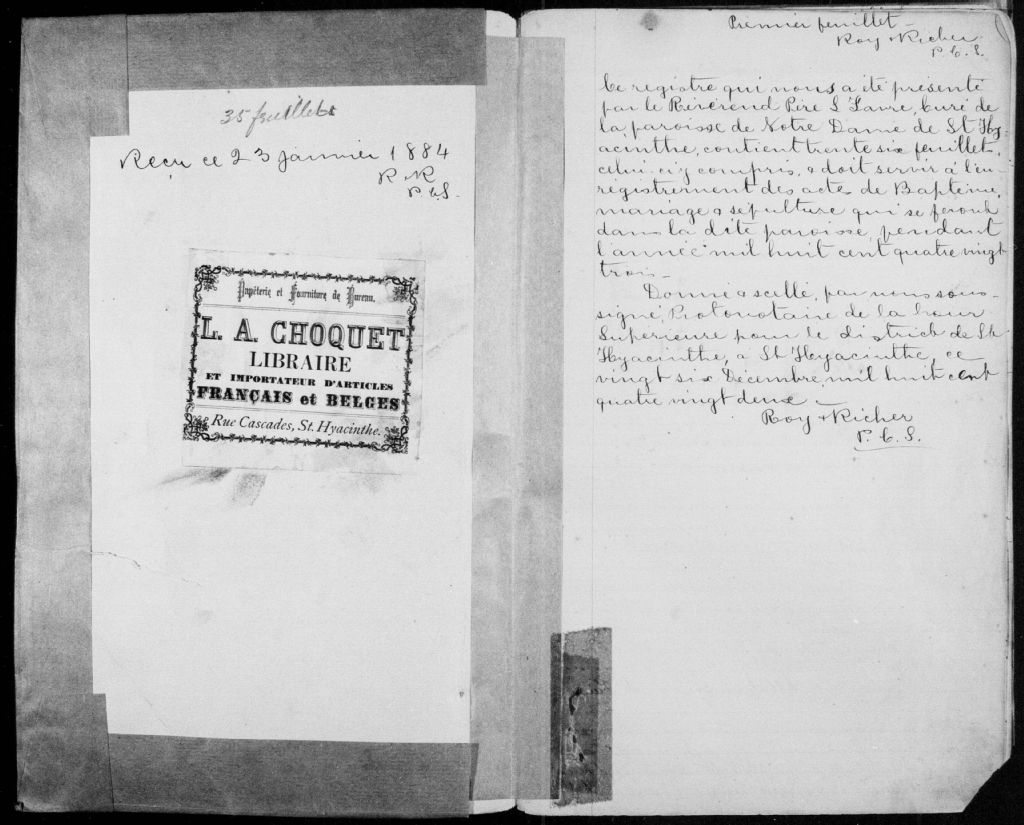 35 feuillets
Reçu ce 23 janvier 1884
R & R
P. C. S.
Papèterie et Fourniture de Bureau.
L. A. CHOQUET
LIBRAIRE
ET IMPORTATEUR D'ARTICLES
FRANÇAIS et BELGES
Rue Cascades, St. Hyacinthe.
Premier feuillet –
Roy & Richer
P. C. S.
Ce registre qui nous a été présenté
par le Révérend Père L Favre, Curé de
la paroisse de Notre Dame de St Hy-
acinthe, contient trente six feuillets,
celui-ci y compris, & doit servir à l'en-
régistrement des actes de Baptême,
mariage & sépulture qui se feront
dans la dite paroisse, pendant
l'année mil huit cent quatre vingt
trois –
Donné & scellé, par nous sous-
signé, Protonotaire de la Cour
Supérieure pour le district de St
Hyacinthe, à St Hyacinthe, ce
vingt six Décembre, mil huit cent
quatre vingt deux –
Roy & Richer
P. C. S.